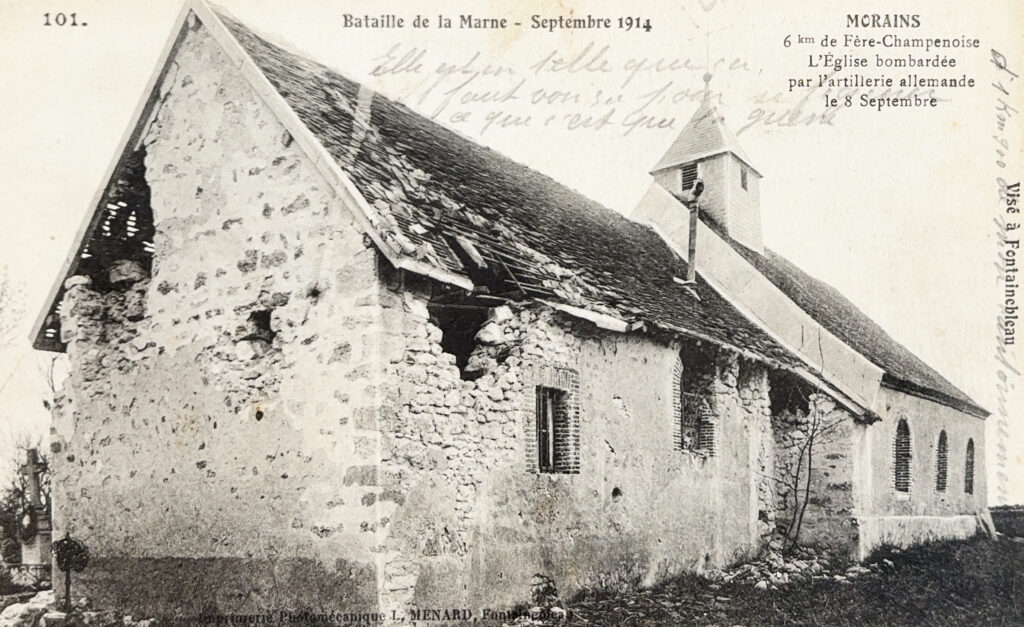 101.
Bataille de la Marne - Septembre 1914
MORAINS
6 km de Fère-Champenoise
L'Église bombardée
par l'artillerie allemande
le 8 Septembre
Elle est en telle que ça,
faut voir
ce que c'est que la guerre
Visé à Fontainebleau
Imprimerie Photomécanique L. MENARD, Fontainebleau